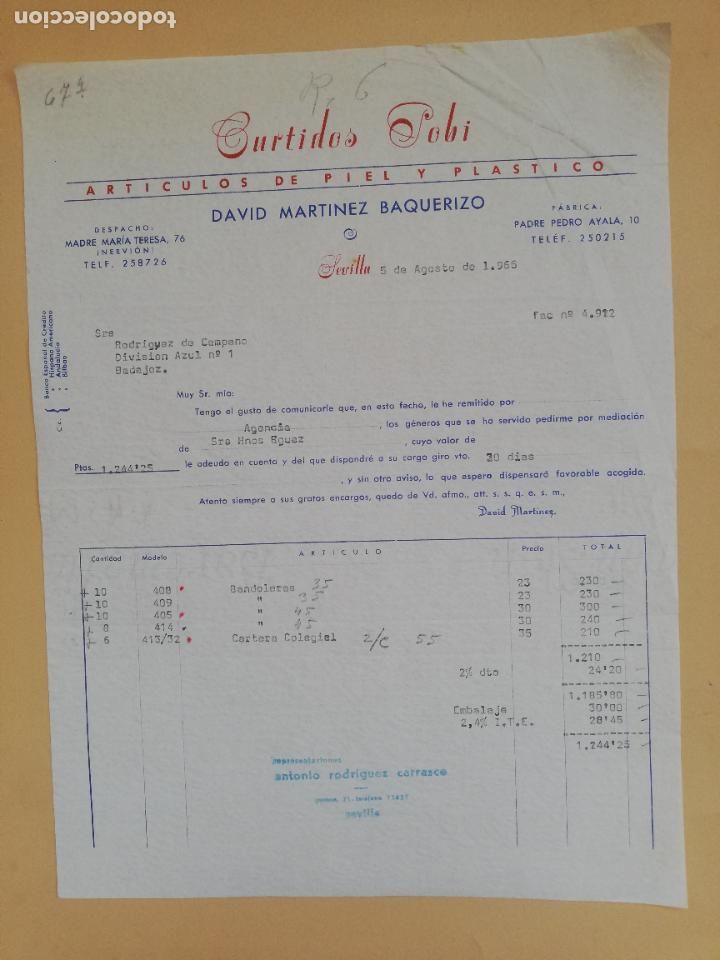 todocoleccion.net
67
R. 6
Curtidos Pobi
ARTICULOS DE PIEL Y PLASTICO
DAVID MARTINEZ BAQUERIZO
DESPACHO:
MADRE MARÍA TERESA, 76
(NERVIÓN)
TELF. 258726
FÁBRICA:
PADRE PEDRO AYALA, 10
TELÉF. 250215
Sevilla 5 de Agosto de 1.965
fac nº 4.912
C.c.
Banco Español de Crédito
Hispano Americano
Andalucía
Bilbao
Srs
Rodriguez de Campano
Division Azul nº 1
Badajoz.
Muy Sr. mío:
Tengo el gusto de comunicarle que, en esta fecha, le he remitido por
Agencia, los géneros que se ha servido pedirme por mediación
de Srs Hnos Eguez, cuyo valor de
Ptas. 1.244'25 le adeudo en cuenta y del que dispondré a su cargo giro vto. 30 dias
, y sin otro aviso, lo que espero dispensará favorable acogida.
Atento siempre a sus gratos encargos, quedo de Vd. afmo., att. s. s. q. e. s. m.,
David Martinez.
Cantidad Modelo ARTICULO Precio TOTAL
10 408 Bandoleras 35 23 230
10 409 " 35 23 230
10 405 " 45 30 300
8 414 " 45 30 240
6 413/32 Cartera Colegial 2/c 55 35 210
1.210
2% dto 24'20
1.185'80
Embalaje 30'00
2,4% I.T.E. 28'45
1.244'25
representaciones
antonio rodríguez carrasco
sevilla